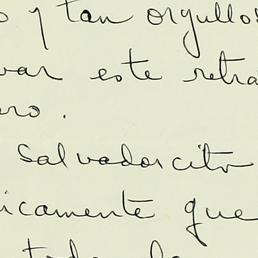 o y tan orgullos
var este retra
ero.
Salvadorcito
icamente que
toda la